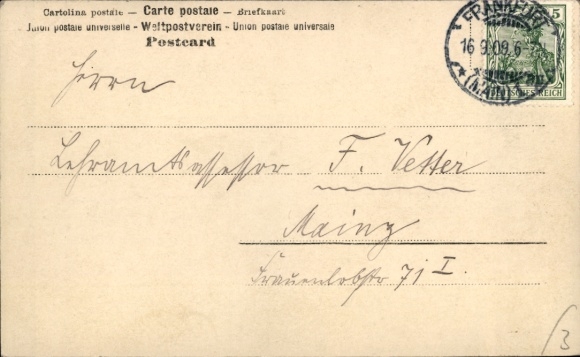 Cartolina postale — Carte postale — Briefkaart
Union postale universelle - Weltpostverein - Union postale universale
Postcard
FRANKFURT
16.9.09.6-
(MAIN)
5
DEUTSCHES REICH
Herrn
Lehramtsassessor F. Vetter
Mainz
Frauenlobstr 71 I.
3